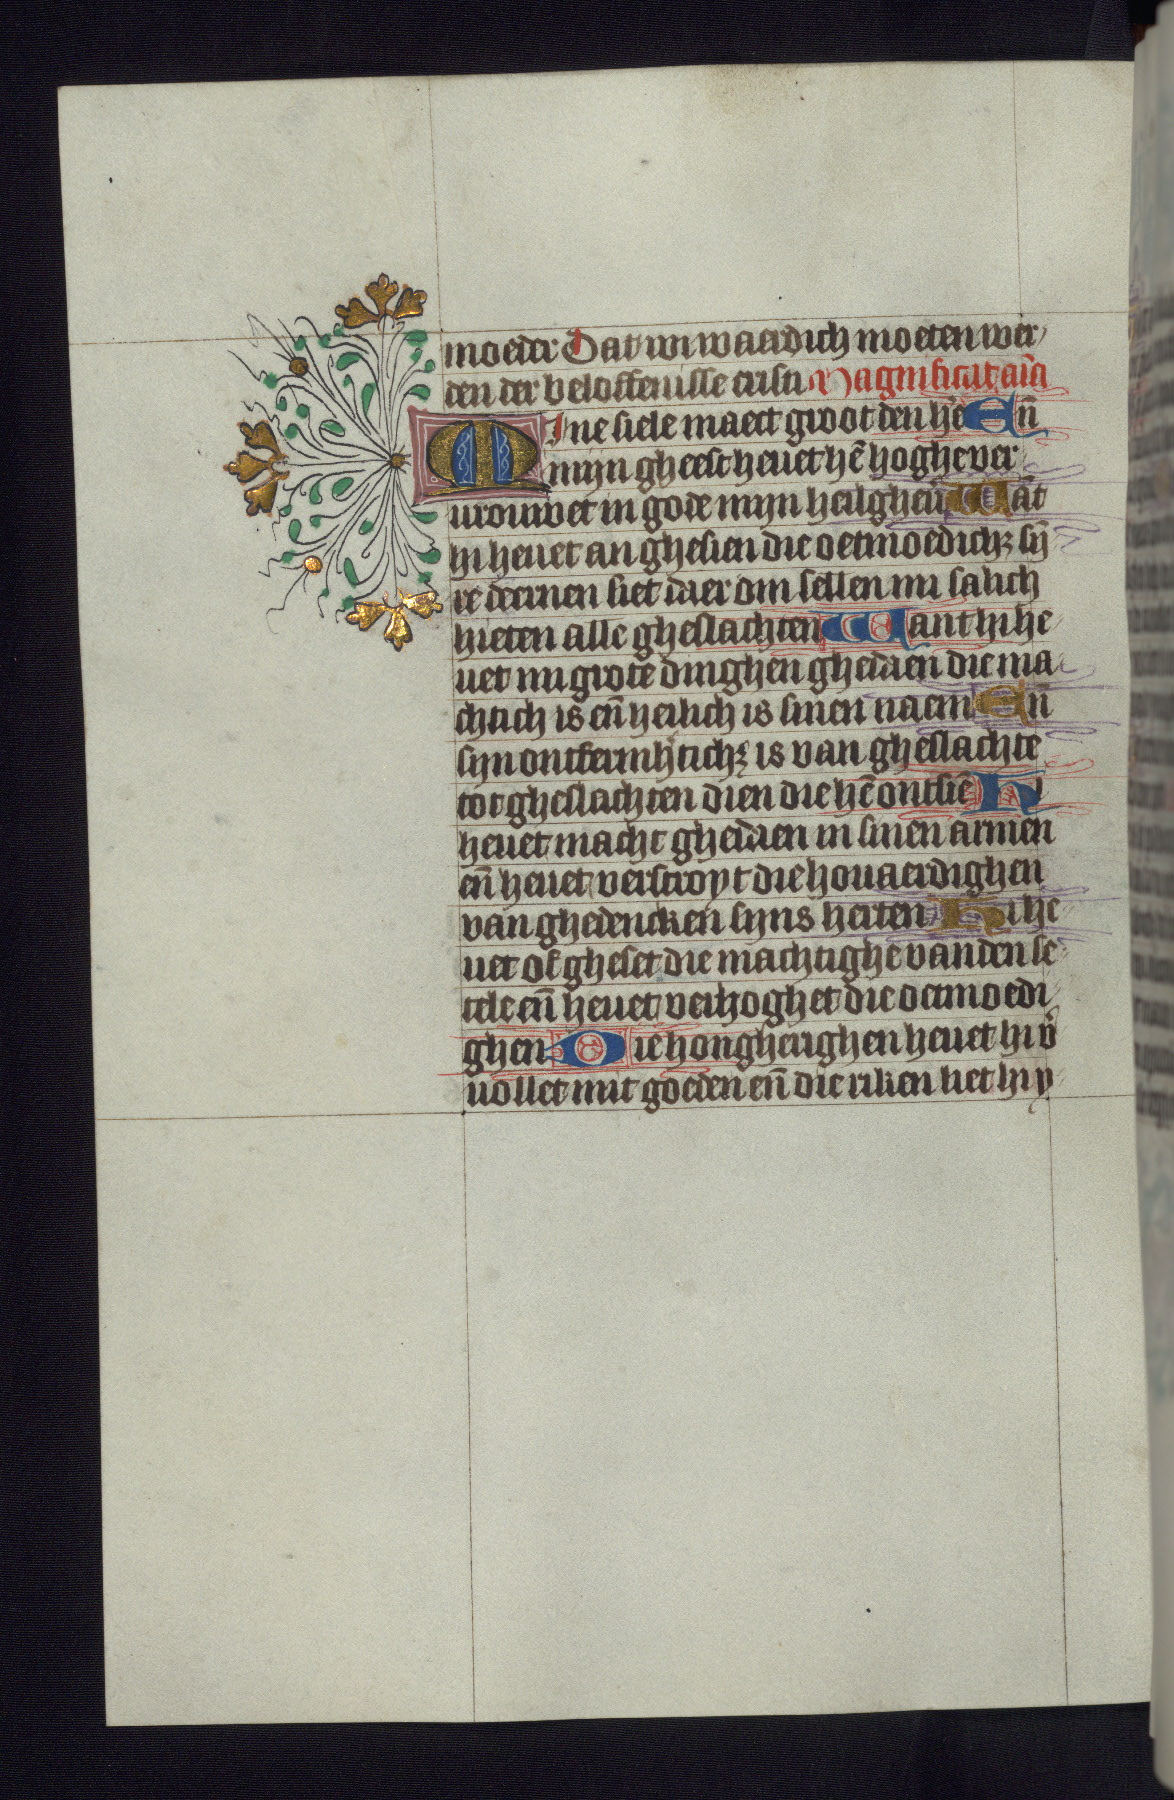 moeder Dat wi waerdich moeten wer
den der beloffenisse cristi Magnificat aīa
MIne siele maect groot den hēre Eñ
mijn gheest heuet hē hoghe ver
urouwet in gode mijn heilgheñ Wāt
hi heuet an ghesien die oetmoedichʒ sij̄
re deernen siet daer om sellen mi salich
hieten alle gheslachten Want hi he
uet mi grote dinghen ghedaen die ma
chtich is eñ heilich is sinen naem Eñ
sijn ontfermhtichʒ is van gheslachte
tot gheslachten dien die hē ontsiē Hi
heuet macht ghedaen in sinen armen
eñ heuet verstroyt die houaerdighen
van ghedencken sijns herten Hi he
uet of gheset die machtighe vanden se
tele eñ heuet verhoghet die oetmoedi
ghen Die hongherighen heuet hi v̄
uollet mit goeden eñ die riken liet hi y